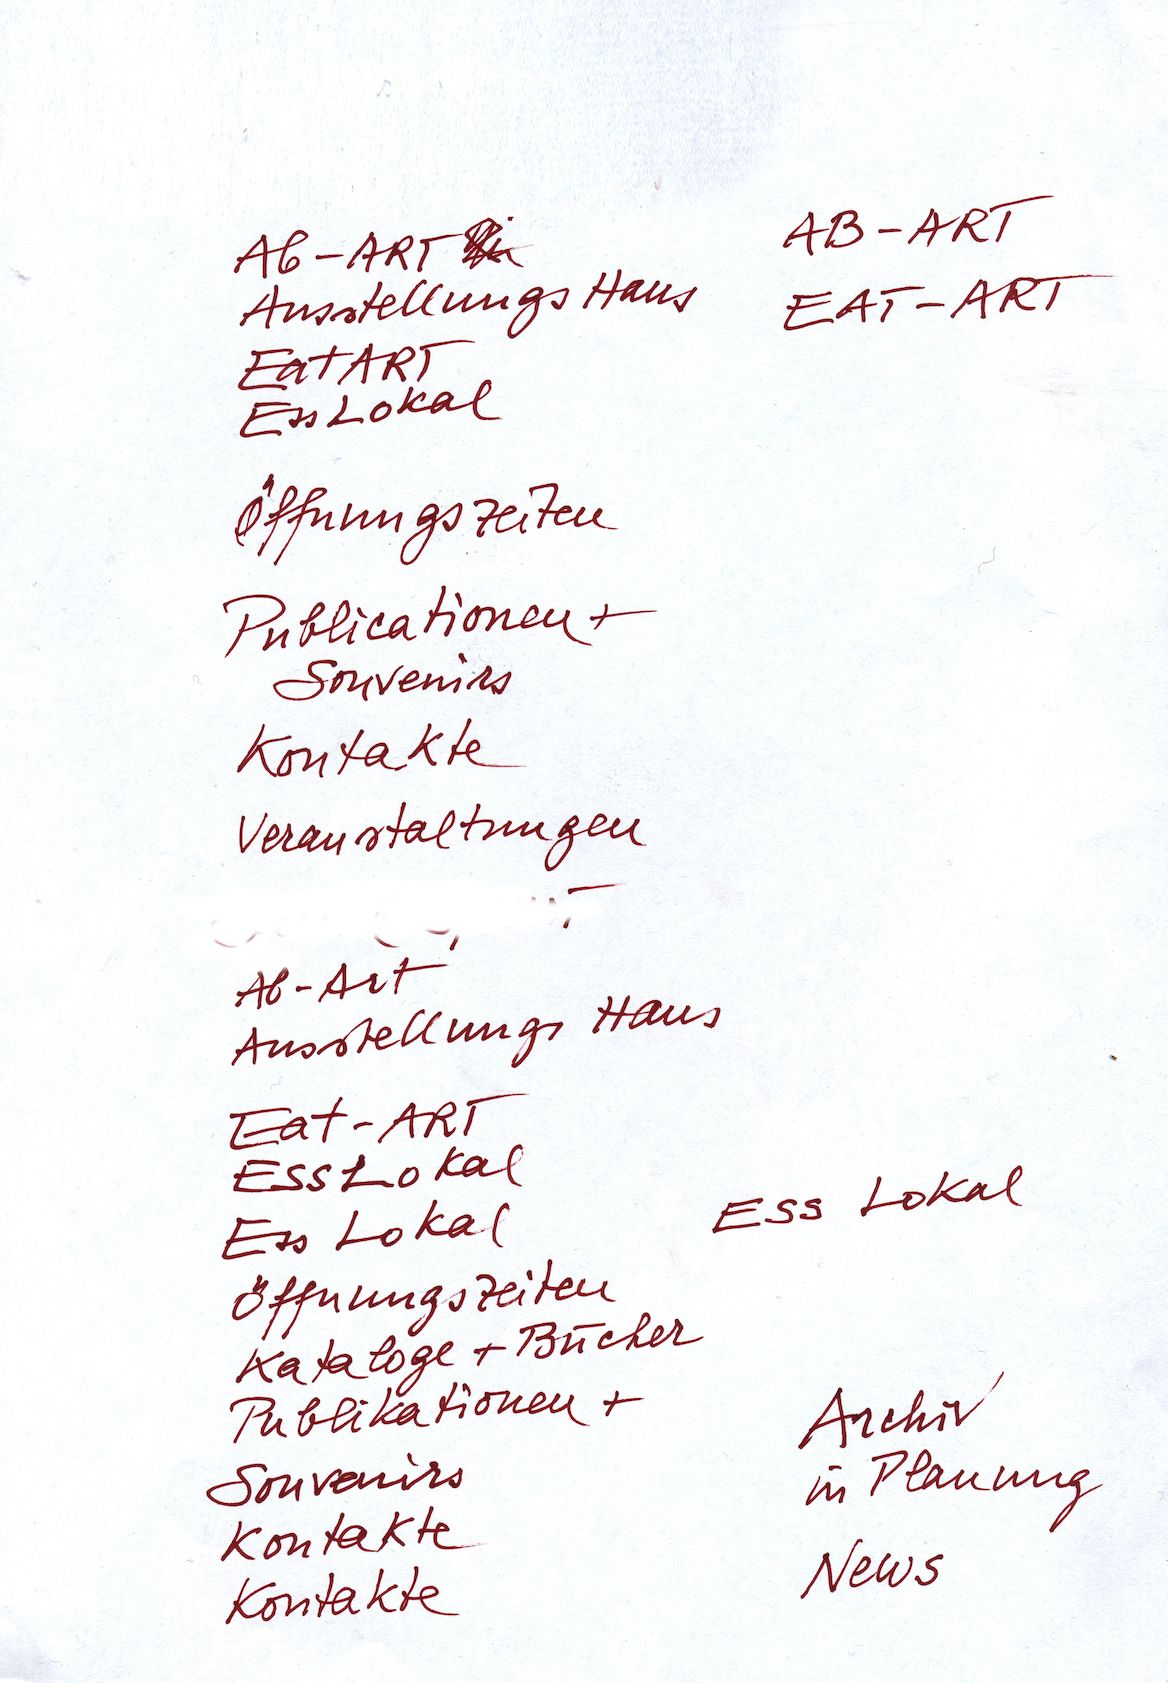 Ab-ART
Ausstellungs Haus
EatART
EssLokal
Öffnungszeiten
Publicationen +
Souvenirs
Kontakte
Veranstaltungen
Ab-Art
Ausstellungs Haus
Eat-ART
ESSLokal
Ess Lokal
Öffnungszeiten
Kataloge + Bücher
Publikationen +
Souvenirs
Kontakte
Kontakte
AB-ART
EAT-ART
ESS Lokal
Archiv
in Planung
News